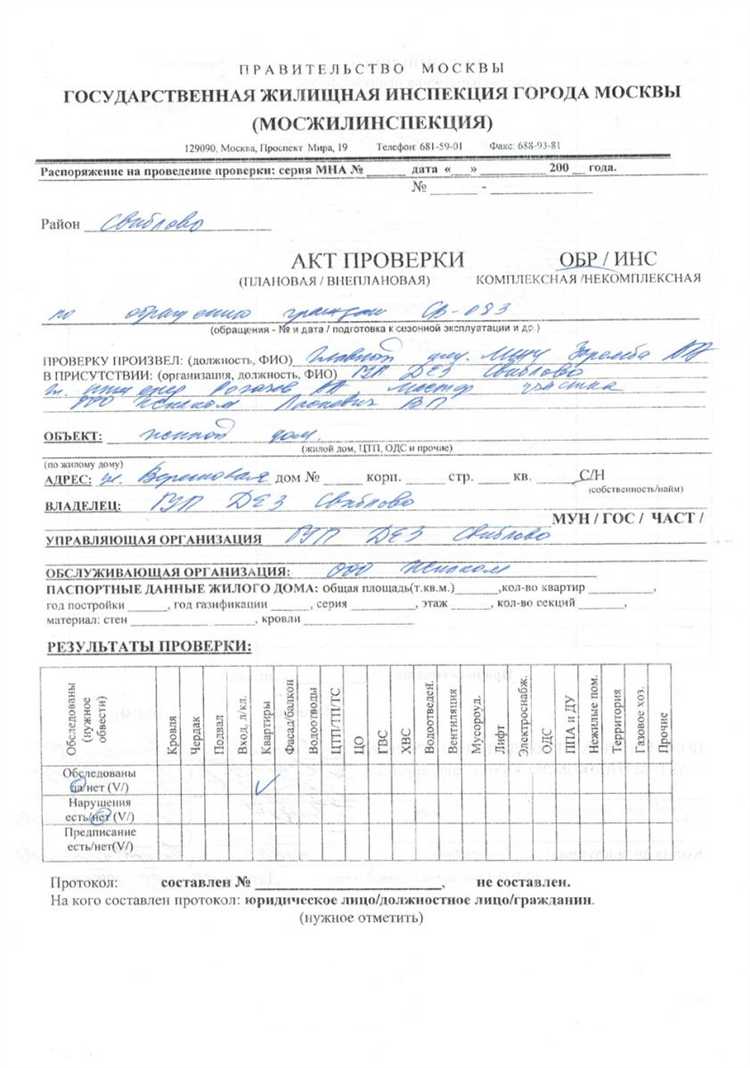 ПРАВИТЕЛЬСТВО МОСКВЫ
ГОСУДАРСТВЕННАЯ ЖИЛИЩНАЯ ИНСПЕКЦИЯ ГОРОДА МОСКВЫ
(МОСЖИЛИНСПЕКЦИЯ)
129090, Москва, Проспект Мира, 19 Телефон: 681-59-01 Факс: 688-93-81
Распоряжение на проведение проверки: серия МНА № ______ дата «___» __________ 200 __ года.
№ ______ - __________
Район Свиблово
АКТ ПРОВЕРКИ ОБР / ИНС
(ПЛАНОВАЯ / ВНЕПЛАНОВАЯ) КОМПЛЕКСНАЯ /НЕКОМПЛЕКСНАЯ
по обращению граждан СВ-083
(обращения - № и дата / подготовка к сезонной эксплуатации и др.)
ПРОВЕРКУ ПРОИЗВЕЛ: (должность, ФИО) Главной
В ПРИСУТСТВИИ: (организация, должность, ФИО) ГУП ДЕЗ Свиблово
гл. инженер мастер участка
ООО
ОБЪЕКТ: жилой дом.
(жилой дом, ЦТП, ОДС и прочие)
(по жилому дому)
АДРЕС: ул. Вересковая дом № _____ корп. _____ стр. _____ кв. _____ С/Н
(собственность/найм)
ВЛАДЕЛЕЦ: ГУП ДЕЗ Свиблово
МУН / ГОС / ЧАСТ /
УПРАВЛЯЮЩАЯ ОРГАНИЗАЦИЯ ГУП ДЕЗ Свиблово
ОБСЛУЖИВАЮЩАЯ ОРГАНИЗАЦИЯ: ООО
ПАСПОРТНЫЕ ДАННЫЕ ЖИЛОГО ДОМА: общая площадь(т.кв.м.)______,кол-во квартир _________,
год постройки ______, год газификации ______, серия ________, этаж ______, кол-во секций _______,
материал: стен __________________, кровли ________________
РЕЗУЛЬТАТЫ ПРОВЕРКИ:
Обследованы (нужное обвести)
Кровля
Чердак
Подвал
Вход, л/кл.
Квартиры
Фасад/балкон
Водоотводы
ЦТП/ТП/ТС
ЦО
ГВС
ХВС
Водоотведен.
Вентиляция
Мусороуд.
Лифт
Электроснабж.
ОДС
ППА и ДУ
Нежилые пом.
Территория
Газовое хоз.
Прочие
Обследованы
да/нет (V/) V
Нарушения
есть/нет (V/)
Предписание
есть/нет(V/)
Протокол: составлен № ________________________, не составлен.
На кого составлен протокол: юридическое лицо/должностное лицо/гражданин.
(нужное отметить)